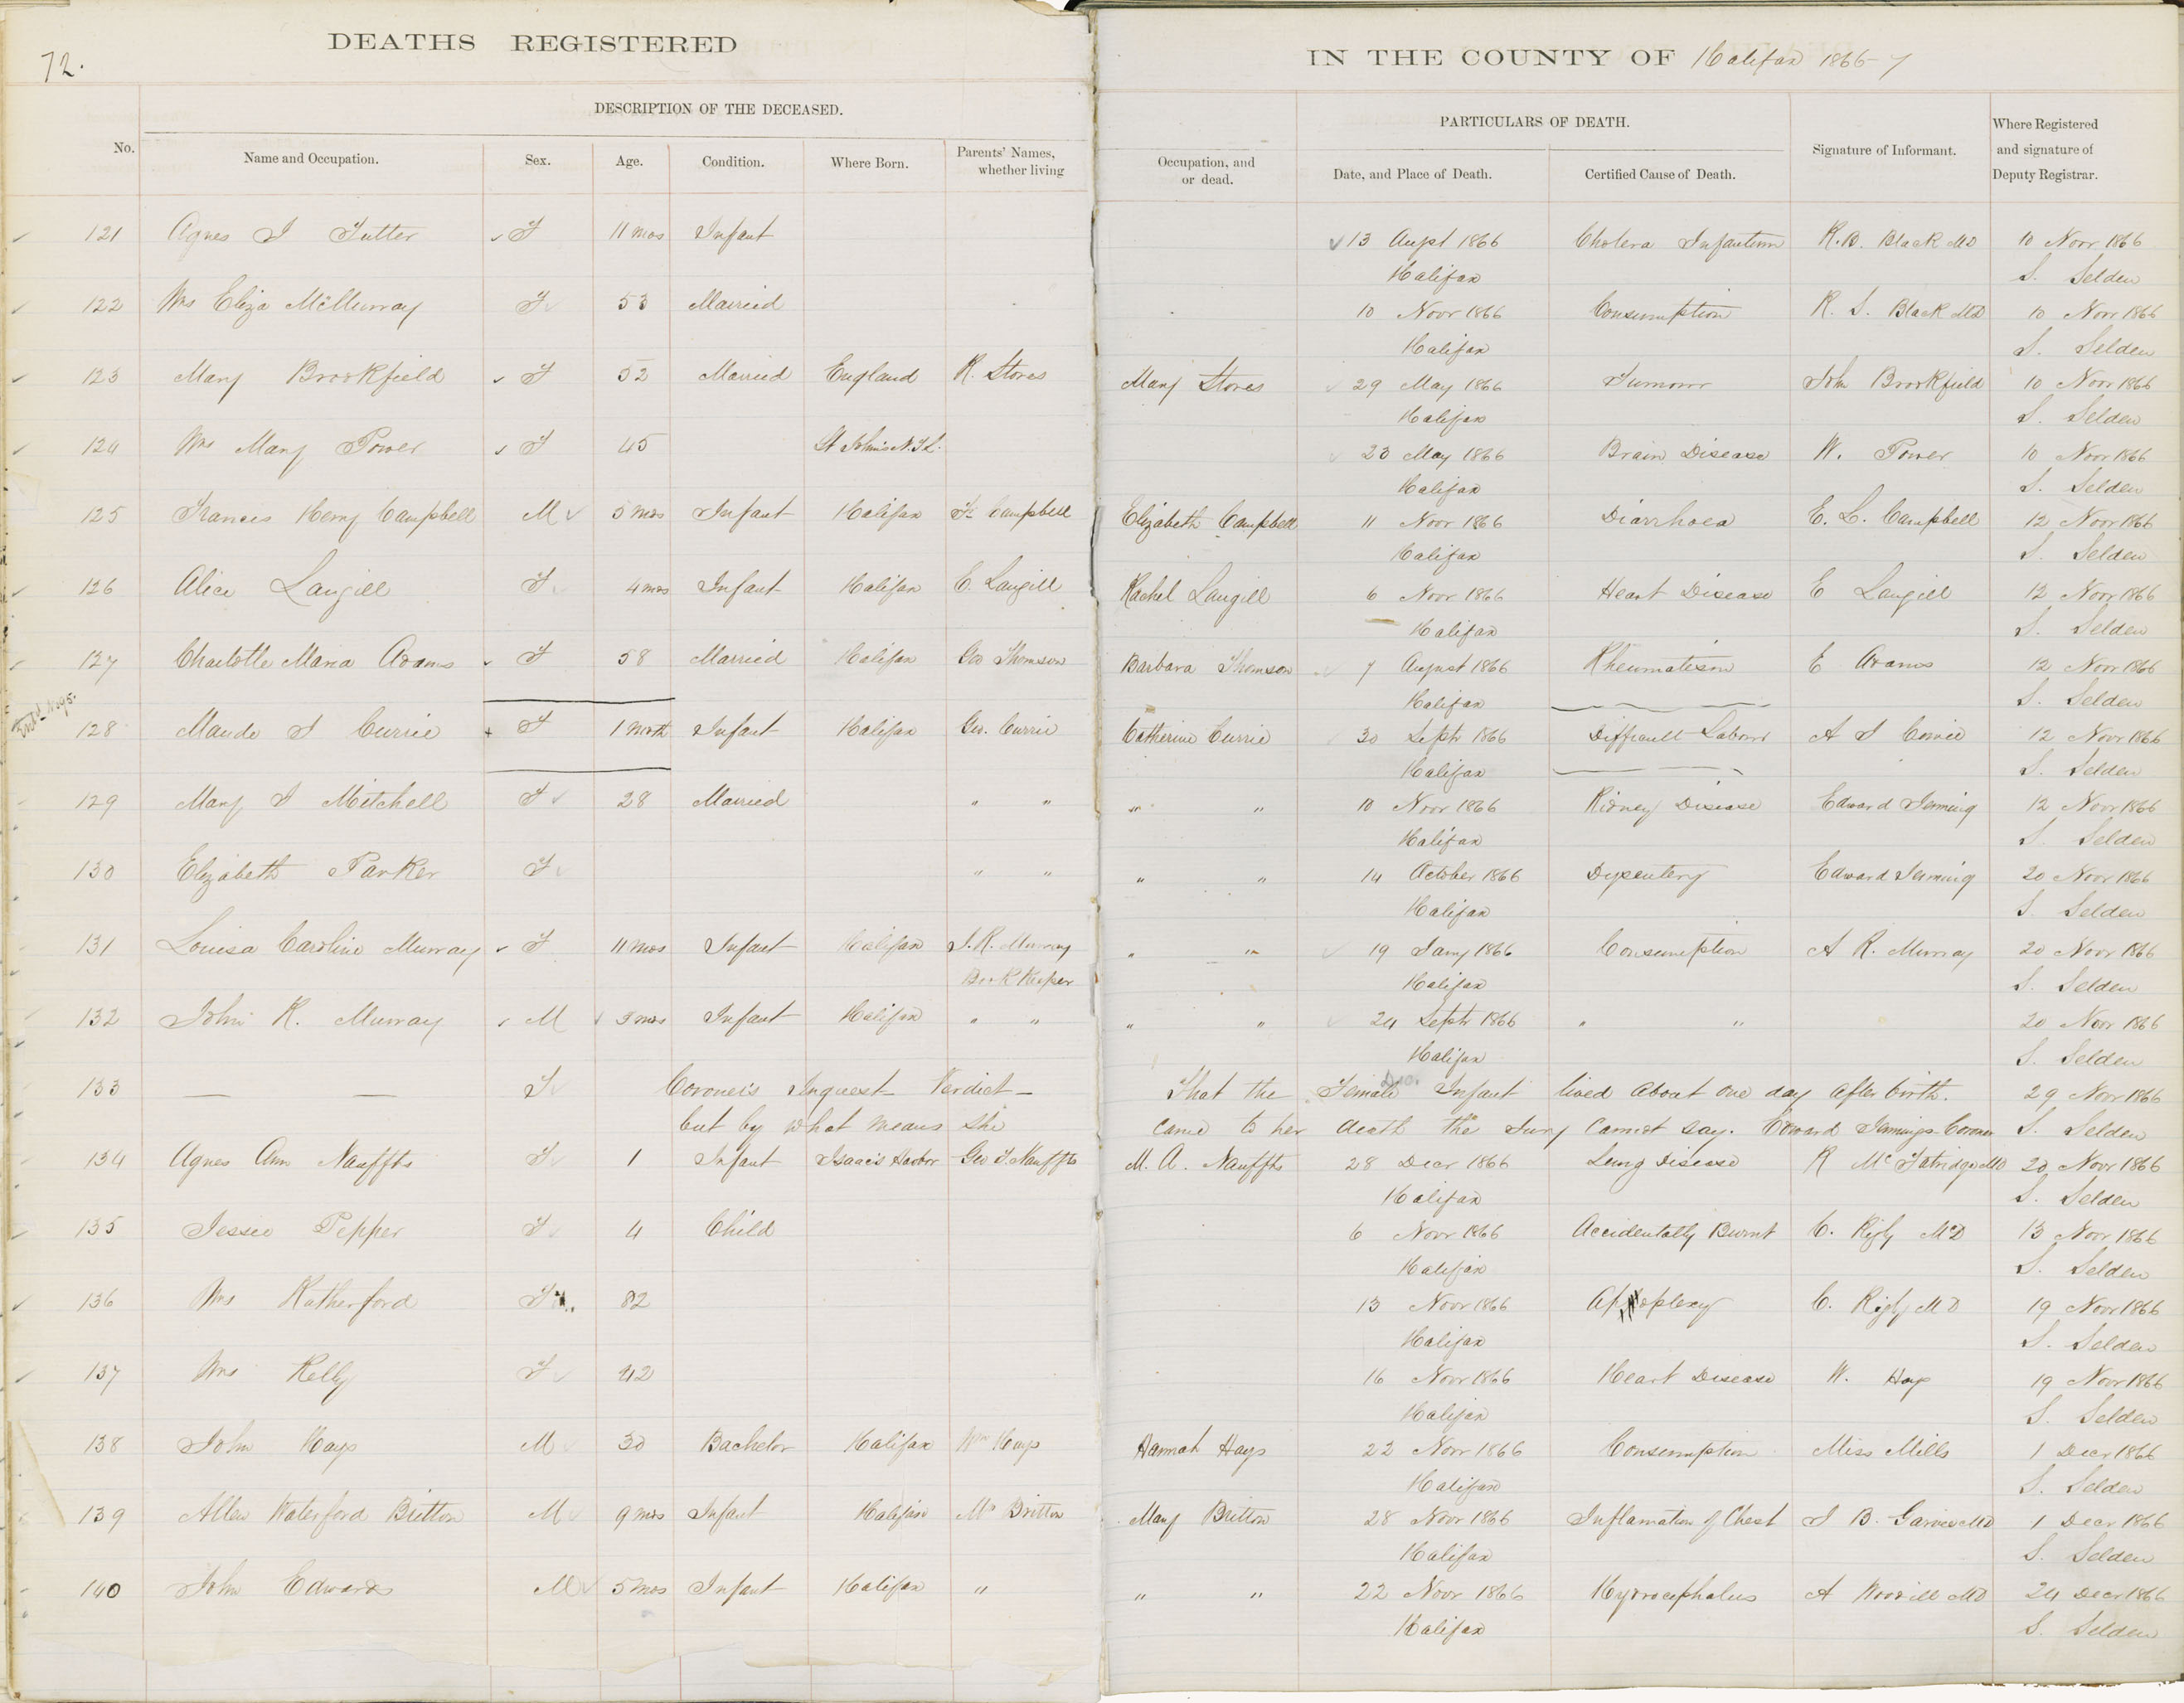 72.
DEATHS REGISTERED IN THE COUNTY OF Halifax 1866-7
DESCRIPTION OF THE DECEASED. PARTICULARS OF DEATH.
No. Name and Occupation. Sex. Age. Condition. Where Born. Parents' Names, whether living Occupation, and or dead. Date, and Place of Death. Certified Cause of Death. Signature of Informant. Where Registered and signature of Deputy Registrar.
121 Agnes J Tutter F 11 mos Infant 13 Augst 1866 Cholera Infantum R.B. Black MD 10 Novr 1866
Halifax S. Selden
122 Mrs Eliza McMurray F 53 Married 10 Novr 1866 Consumption R. S. Black MD 10 Novr 1866
Halifax S. Selden
123 Mary Brookfield F 52 Married England R. Stores Mary Stores 29 May 1866 Tumour John Brookfield 10 Novr 1866
Halifax S. Selden
124 Mrs Mary Power F 45 St John's N.F.L. 23 May 1866 Brain Disease W. Power 10 Novr 1866
Halifax S. Selden
125 Francis Henry Campbell M 5 mos Infant Halifax Campbell Elizabeth Campbell 11 Novr 1866 Diarrhoea E. L. Campbell 12 Novr 1866
Halifax S. Selden
126 Alice Langill F 4 mos Infant Halifax E. Langill Rachel Langill 6 Novr 1866 Heart Disease E Langill 12 Novr 1866
Halifax S. Selden
127 Charlotte Maria Adams F 58 Married Halifax Geo Thomson Barbara Thomson 7 August 1866 Rheumatism E Adams 12 Novr 1866
Halifax S. Selden
128 Maude J Currie + F 1 month Infant Halifax Geo. Currie Catherine Currie 30 Septr 1866 Difficult Labour A J Cowie 12 Novr 1866
Halifax S. Selden
129 Mary J Mitchell F 28 Married " " " " 10 Novr 1866 Kidney Disease Edward Jennings 12 Novr 1866
Halifax S. Selden
130 Elizabeth Parker F " " " " 14 October 1866 Dysentery Edward Jennings 20 Novr 1866
Halifax S. Selden
131 Louisa Caroline Murray F 11 mos Infant Halifax J. R. Murray " " 19 Jany 1866 Consumption A R. Murray 20 Novr 1866
Book Keeper Halifax S. Selden
132 John R. Murray M 3 mos Infant Halifax " " " " 24 Septr 1866 " " 20 Novr 1866
Halifax S. Selden
133 — — F Coroner's Inquest — Verdict — That the Female Infant lived about one day after birth. 29 Novr 1866
but by what means she came to her death the Jury cannot say. Edward Jennings Coroner S. Selden
134 Agnes Ann Nauffts F 1 Infant Isaac's Harbor Geo T. Nauffts M. A. Nauffts 28 Decr 1866 Lung Disease R McFatridge MD 20 Novr 1866
Halifax S. Selden
135 Jessie Pepper F 4 Child 6 Novr 1866 Accidentally Burnt C. Rigby MD 13 Novr 1866
Halifax S. Selden
136 Mrs Rutherford F 82 13 Novr 1866 Apoplexy C. Rigby MD 19 Novr 1866
Halifax S. Selden
137 Mrs Kelly F 42 16 Novr 1866 Heart Disease W. Hays 19 Novr 1866
Halifax S. Selden
138 John Hays M 30 Bachelor Halifax Wm Hays Hannah Hays 22 Novr 1866 Consumption Miss Mills 1 Decr 1866
Halifax S. Selden
139 Allen Waterford Britton M 9 mos Infant Halifax Mr Britton Mary Britton 28 Novr 1866 Inflamation of Chest J B. Garvie MD 1 Decr 1866
Halifax S. Selden
140 John Edwards M 5 mos Infant Halifax " " " 22 Novr 1866 Hydrocephalus A Woodill MD 24 Decr 1866
Halifax S. Selden